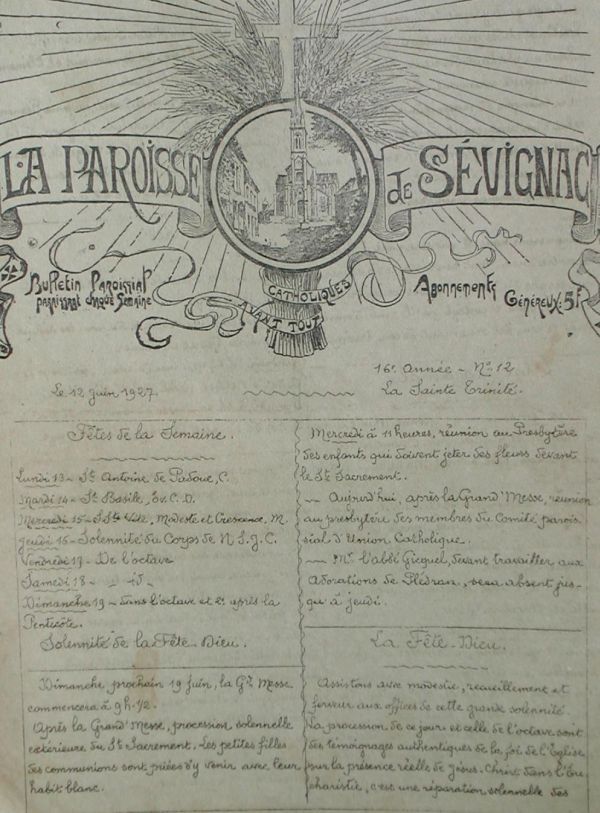 LA PAROISSE de SÉVIGNAC
Bulletin Paroissial
paraissant chaque Semaine
CATHOLIQUES
AVANT TOUT
Abonnements
Généreux: 5f
Le 12 juin 1927.
16e année - No 12
La Sainte Trinité.
Fêtes de la Semaine.
Lundi 13 - St Antoine de Padoue, C.
Mardi 14 - St Basile, Ev. C. D.
Mercredi 15 - SSts Vite, Modeste et Crescence, M.
Jeudi 16 - Solennité du Corps de N.S.J.C.
Vendredi 17 - De l'octave
Samedi 18 - - id -
Dimanche 19 - dans l'octave et 2e après la
Pentecôte.
Solennité de la Fête-Dieu.
Dimanche prochain 19 juin, la Gd Messe
commencera à 9h.1/2.
Après la Grand'Messe, procession solennelle
extérieure du St Sacrement. Les petites filles
des communions sont priées d'y venir avec leur
habit blanc.
Mercredi à 11 heures, réunion au Presbytère
des enfants qui doivent jeter des fleurs devant
le St Sacrement.
— Aujourd'hui, après la Grand'Messe, réunion
au presbytère des membres du Comité parois-
sial d'Union Catholique.
— Mr l'abbé Gicquel, devant travailler aux
Adorations de Plédran, sera absent jus-
qu'à jeudi.
La Fête-Dieu.
Assistons avec modestie, recueillement et
ferveur aux offices de cette grande solennité.
La procession de ce jour et celle de l'octave sont
des témoignages authentiques de la foi de l'Eglise
sur la présence réelle de Jésus-Christ dans l'Eu-
charistie, c'est une réparation solennelle des